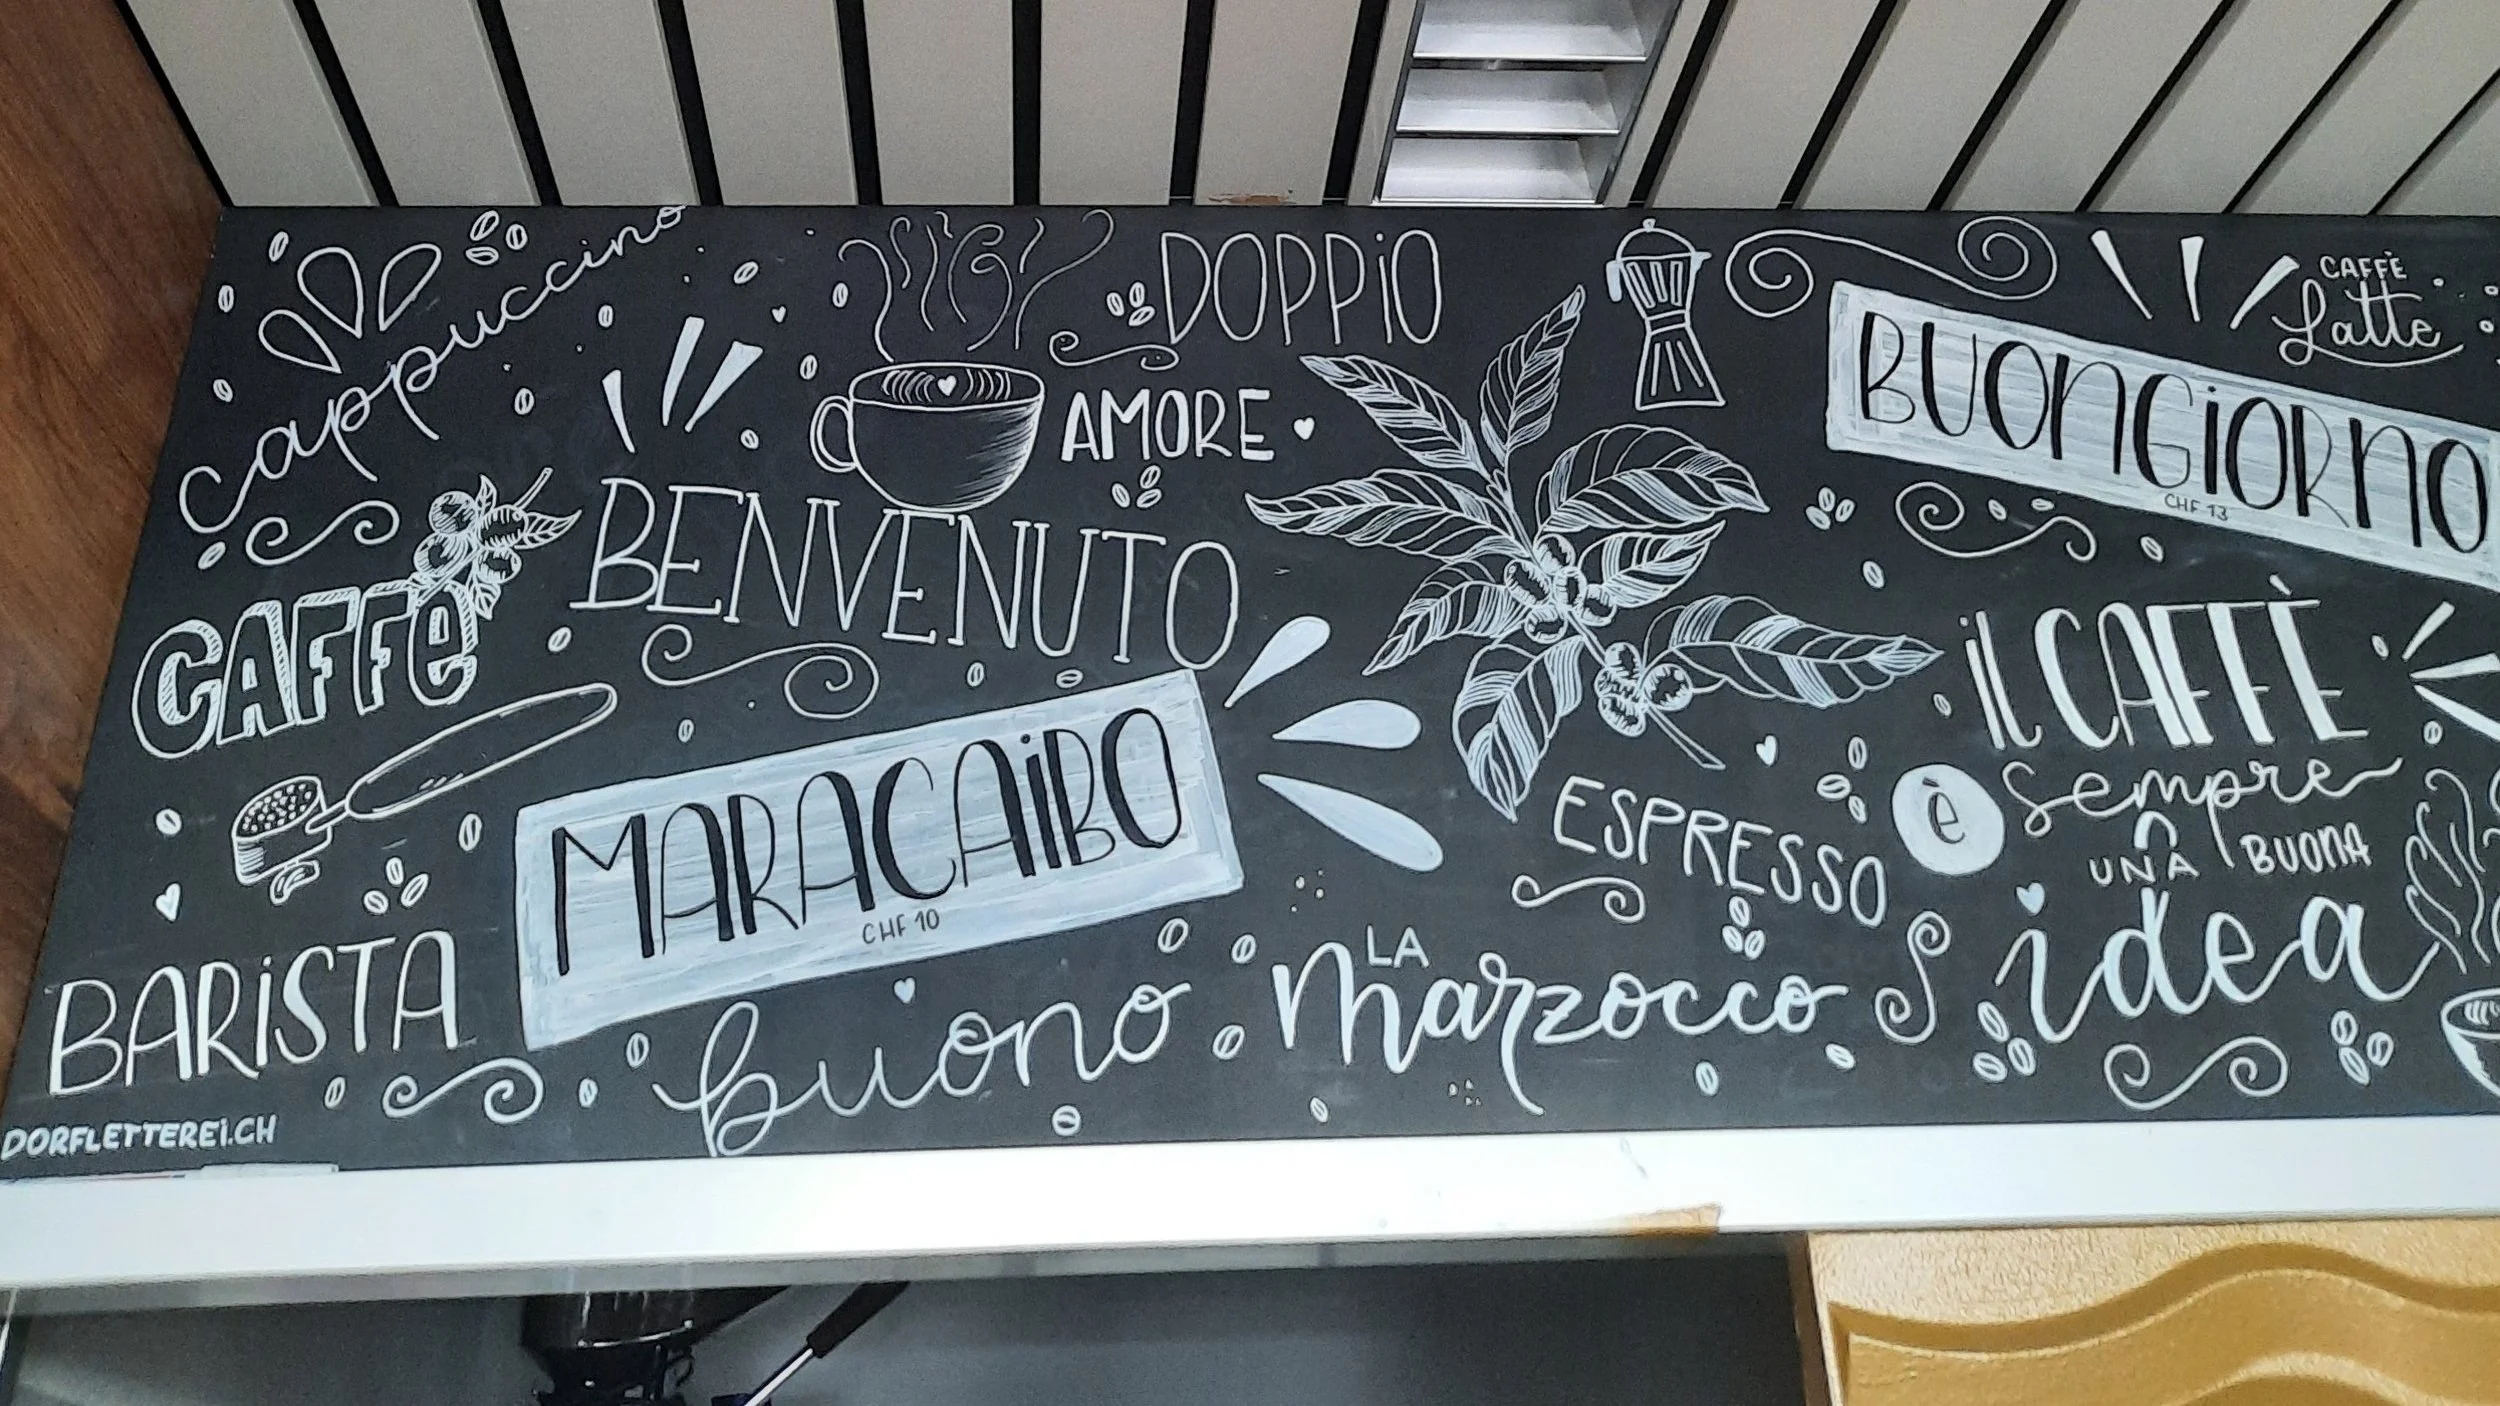 cappuccino
DOPPiO
CAFFÈ
Latte
BUONGiORNO
CHF 13
AMORE
BENVENUTO
CAFFè
iL CAFFÈ
è sempre
UNA BUONA
idea
MARACAiBO
CHF 10
ESPRESSO
BARiSTA
buono
LA
Marzocco
DORFLETTEREi.CH